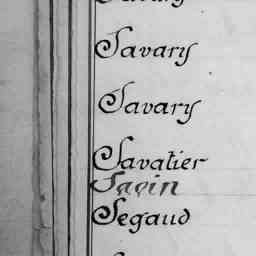 Savary
Savary
Savary
Savatier
Savin
Segaud